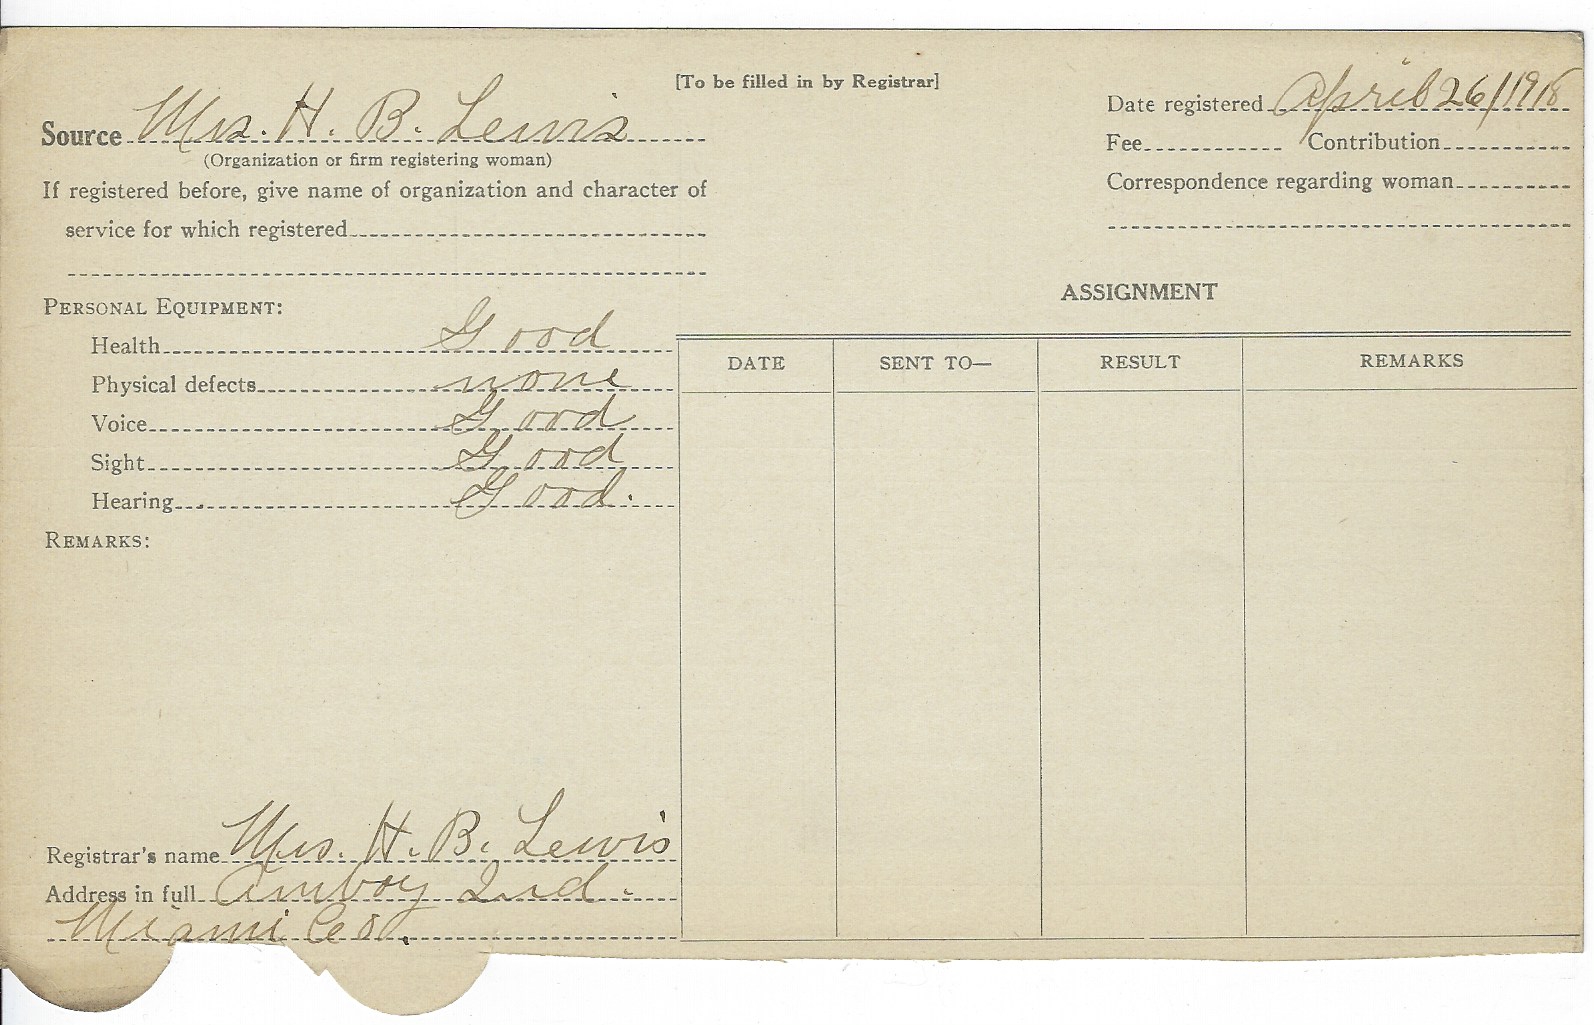 [To be filled in by Registrar]
Source Mrs. H. B. Lewis
(Organization or firm registering woman)
If registered before, give name of organization and character of
service for which registered
Date registered April 26/1918
Fee Contribution
Correspondence regarding woman
PERSONAL EQUIPMENT:
Health Good
Physical defects none
Voice Good
Sight Good
Hearing Good.
REMARKS:
Registrar's name Mrs. H. B. Lewis
Address in full Amboy Ind.
Miami Co.
ASSIGNMENT
DATE SENT TO— RESULT REMARKS